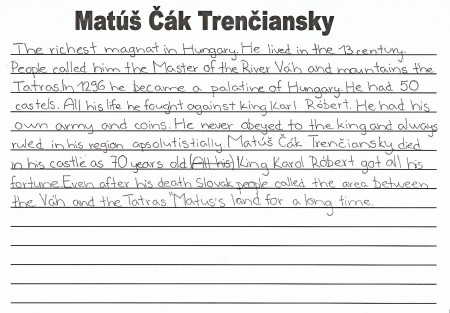 Matúš Čák Trenčiansky
The richest magnat in Hungary. He lived in the 13 century.
People called him the Master of the River Váh and mountains the
Tatras. In 1296 he became a palatine of Hungary. He had 50
castels. All his life he fought against king Karl Róbert. He had his
own army and coins. He never obeyed to the king and always
ruled in his region apsolutistially. Matúš Čák Trenčiansky died
in his castle as 70 years old (All his) King Karol Róbert got all his
fortune. Even after his death Slovak people called the area between
the Váh and the Tatras "Matus's land for a long time.